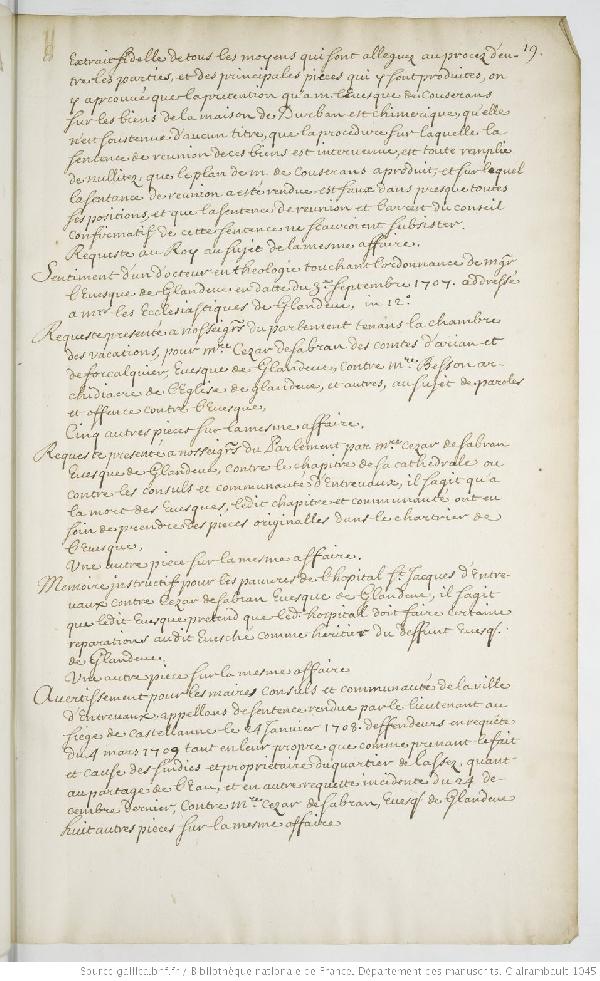 19.
Extrait fidelle de tous les moyens qui sont alleguez au procez d'en-
tre les parties, et des principales pieces qui y sont produites, on
y a prouvé que la pretention qu'a m. l'Evesque de Couserans
sur les biens de la maison de Durban est chimerique, qu'elle
n'est soustenue d'aucun titre, que la procedure sur laquelle la
sentence de reunion de ces biens est intervenue, est toute remplie
de nullitez, que le plan de m. de Couserans a produit, et sur lequel
la sentence de reunion a esté rendue est faux dans presque toutes
ses positions, et que la sentence de reunion et l'arrest du conseil
confirmatif de cette sentence ne scauroient subsister.
Requeste au Roy au sujet de la mesme affaire.
Sentiment d'un docteur en theologie touchant l'ordonnance de mgr
l'Evesque de Glandeve en datte du 3e Septembre 1707. addressé
a mrs les Ecclesiastiques de Glandeve, in 12°
Requeste presenté a nosseigrs du parlement tenans la chambre
des vacations, pour mre Cezar de Sabran des comtes d'arian et
de forcalquier, Evesque de Glandeve, contre mre Besson ar-
chidiacre de l'Eglise de Glandeve, et autres, au sujet de paroles
et offence contre l'Evesque,
Cinq autres pieces sur la mesme affaire.
Requeste presenté a nosseigrs du Parlement par mre Cezar de Sabran
Evesque de Glandeve, contre le chapitre de sa cathedrale ou
contre les consuls et communauté d'Entrevaux, il s'agit qu'a
la mort des Evesques, ledit chapitre et communauté ont eu
soin de prendre des pieces originalles dans le chartrier de
l'Evesque,
Une autre piece sur la mesme affaire.
Memoire instructif pour les pauvres de l'hopital St. Jacques d'Entre-
vaux contre Cezar de Sabran Evesque de Glandeve, il s'agit
que ledit Evesque pretend que led. hospital doit faire certaine
reparations audit Evesché comme heritier du deffunt Evesq.
de Glandeve.
Une autre piece sur la mesme affaire
Avertissement pour les maires consuls et communauté de la ville
d'Entrevaux appellans de sentence rendue par le lieutenant au
siege de Castellanne le 24 Janvier 1708. deffendeurs en requête
du 4 mars 1709 tant en leur propre que comme prenant le fait
et cause des sindics et propriétaire du quartier de la sez, quant
au partage de l'Eau, et en autre requette incidente du 24 De-
cembre dernier, contre mre Cezar de Sabran, Evesq. de Glandeve
huit autres pieces sur la mesme affaire
Source gallica.bnf.fr / Bibliothèque nationale de France. Département des manuscrits. Clairambault 1045